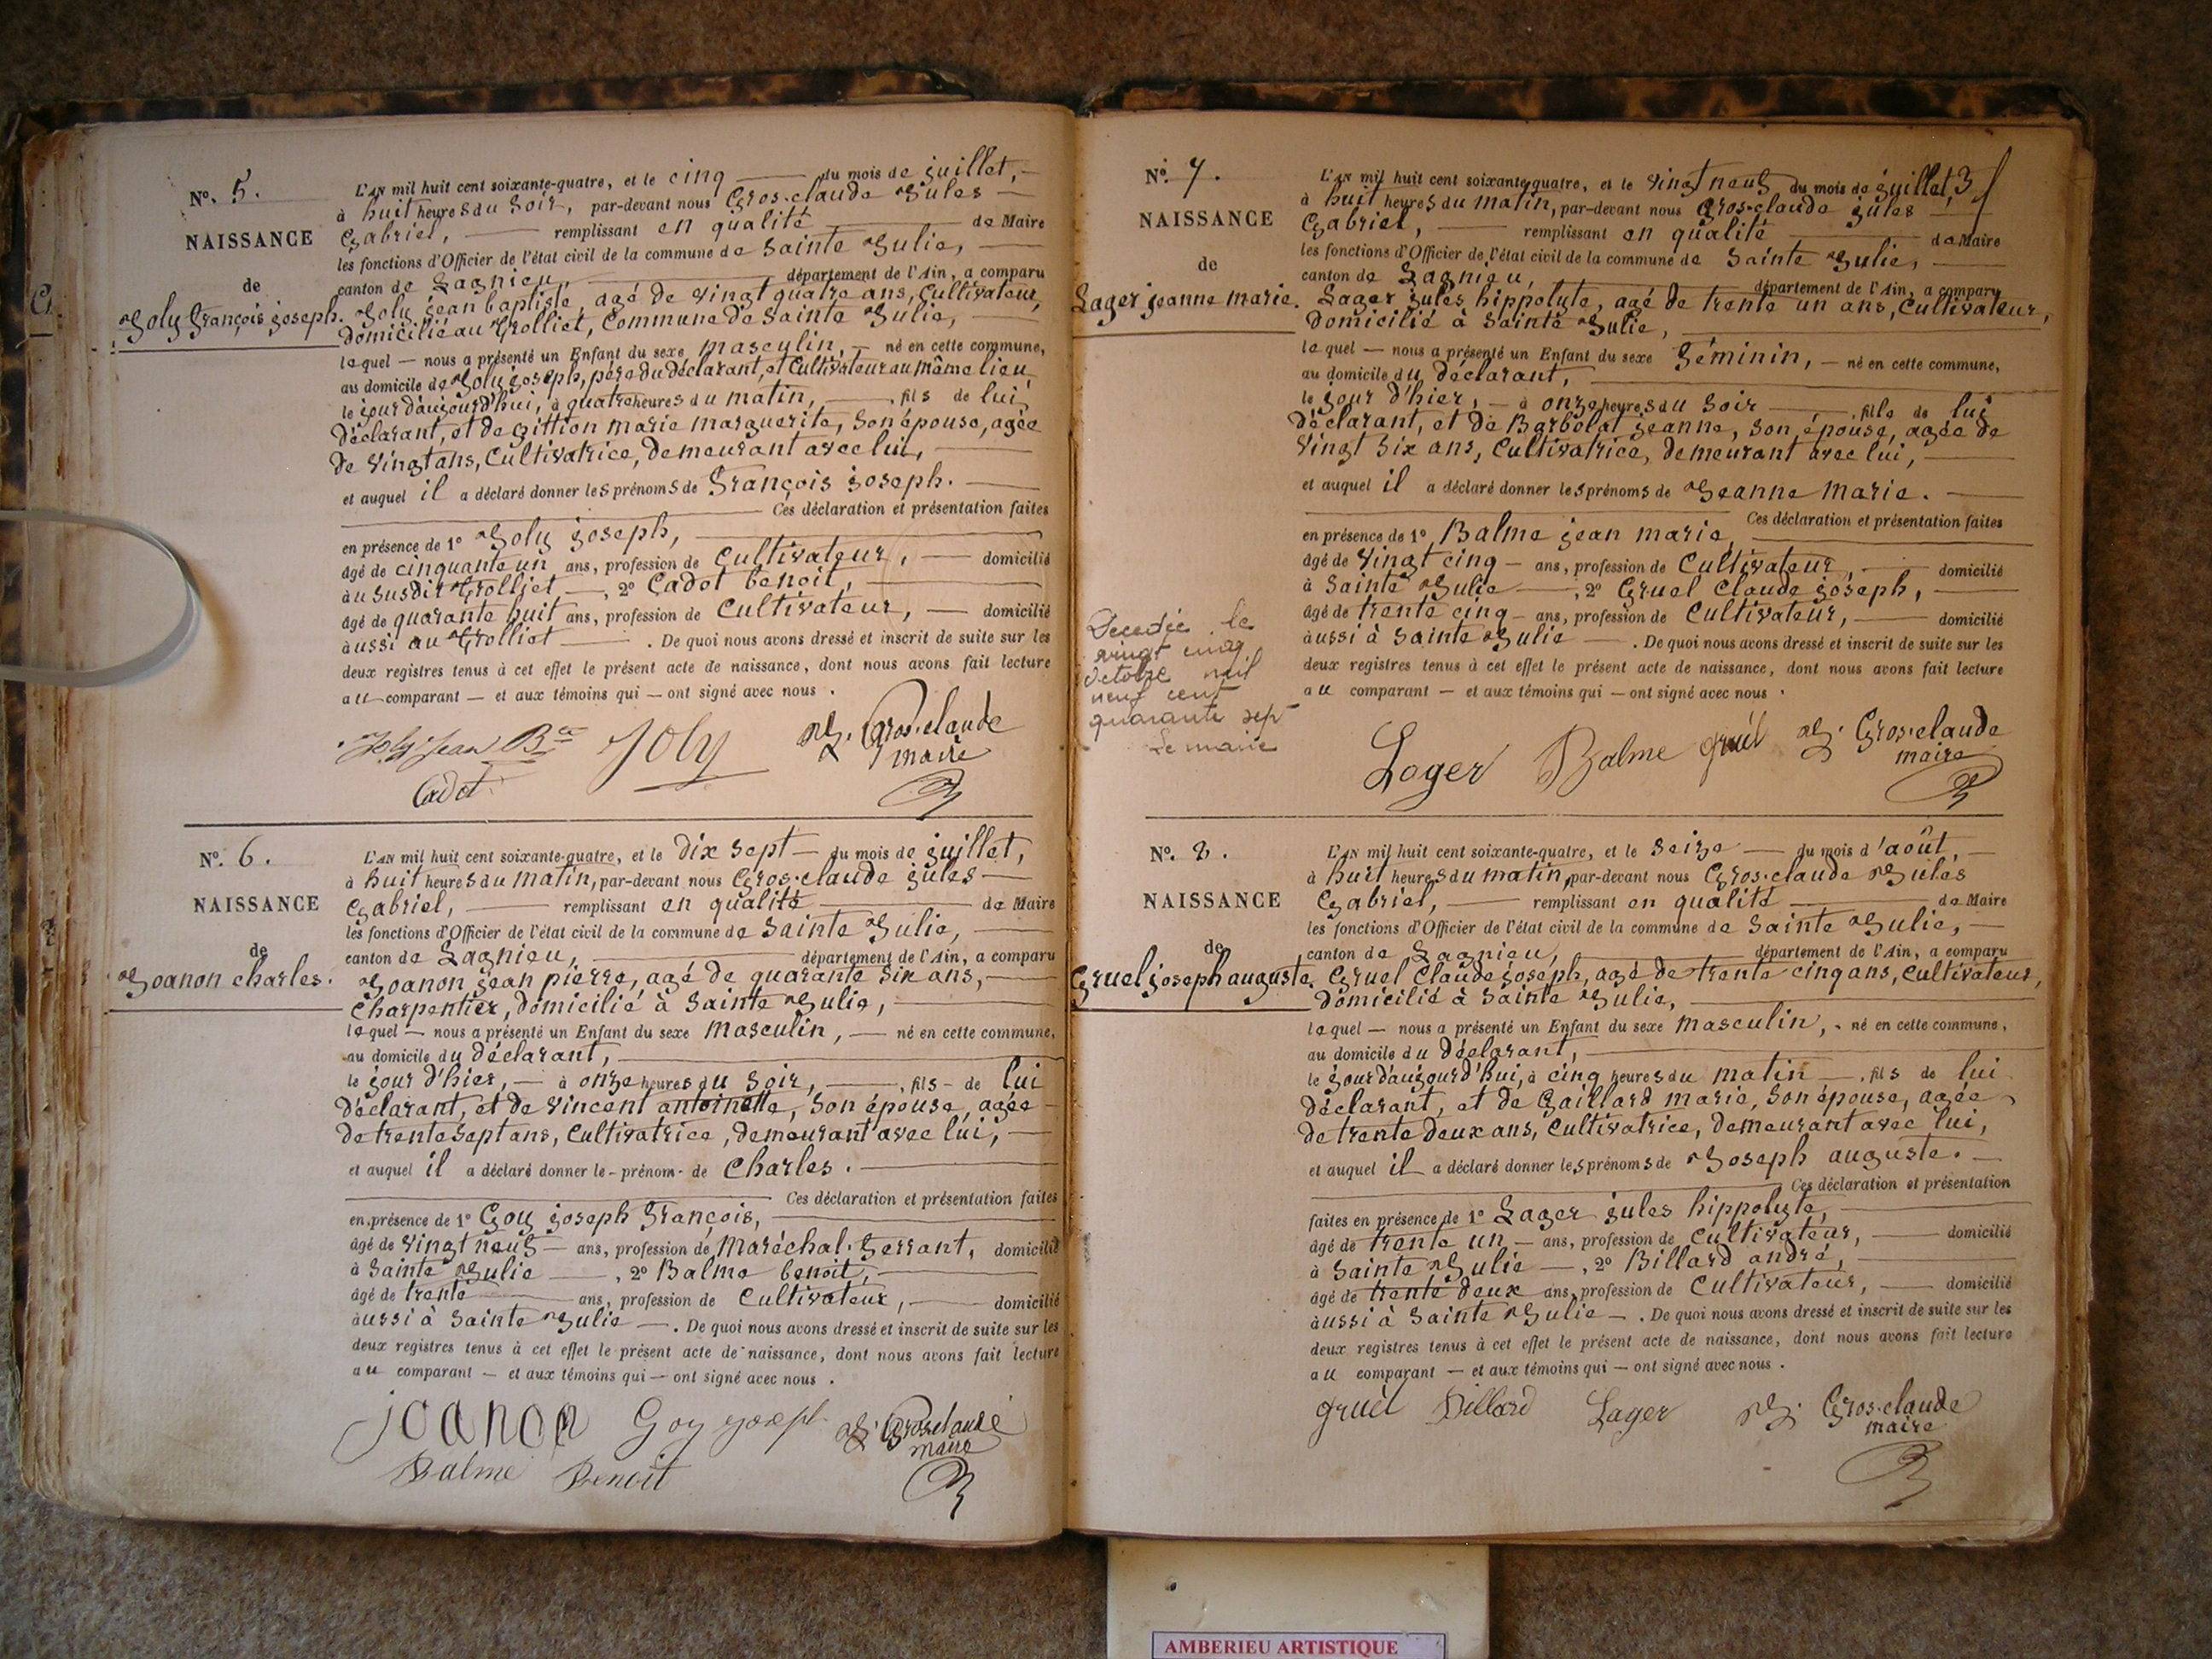 N.º 5.
NAISSANCE
de
Joly François joseph.
L'AN mil huit cent soixante-quatre, et le cinq — du mois de juillet, —
à huit heures du soir, par-devant nous Gros-claude Jules —
Gabriel, — remplissant en qualité — de Maire
les fonctions d'Officier de l'état civil de la commune de Sainte Julie, —
canton de Lagnieu, — département de l'Ain, a comparu
Joly jean baptiste, agé de vingt quatre ans, Cultivateur,
domicilié au Trolliet, Commune de Sainte Julie, —
lequel — nous a présenté un Enfant du sexe masculin, — né en cette commune,
au domicile de Joly joseph, père du déclarant, et Cultivateur au même lieu
le jour d'aujourd'hui, à quatre heures du matin, — , fils de lui
déclarant, et de Gittion marie marguerite, son épouse, agée
de vingt ans, Cultivatrice, demeurant avec lui, —
et auquel il a déclaré donner les prénoms de François joseph. —
— Ces déclaration et présentation faites
en présence de 1º Joly joseph, —
âgé de cinquante un ans, profession de Cultivateur, — domicilié
au susdit Trolliet — , 2º Cadot benoit, —
âgé de quarante huit ans, profession de Cultivateur, — domicilié
aussi au Trolliet — . De quoi nous avons dressé et inscrit de suite sur les
deux registres tenus à cet effet le présent acte de naissance, dont nous avons fait lecture
au comparant — et aux témoins qui — ont signé avec nous .
Joly Jean Bte Joly J. Gros-claude
maire
Cadot
N.º 6.
NAISSANCE
de
Joanon charles.
L'AN mil huit cent soixante-quatre, et le dix sept — du mois de juillet,
à huit heures du matin, par-devant nous Gros-claude jules —
Gabriel, — remplissant en qualité — de Maire
les fonctions d'Officier de l'état civil de la commune de Sainte Julie, —
canton de Lagnieu, — département de l'Ain, a comparu
Joanon jean pierre, agé de quarante six ans, —
Charpentier, domicilié à Sainte Julie, —
lequel — nous a présenté un Enfant du sexe masculin, — né en cette commune,
au domicile du déclarant, —
le jour d'hier, — à onze heures du soir, — , fils - de lui
déclarant, et de Vincent antoinette, son épouse, agée —
de trente sept ans, Cultivatrice, demeurant avec lui, —
et auquel il a déclaré donner le - prénom - de Charles. —
— Ces déclaration et présentation faites
en présence de 1º Goy joseph François, —
âgé de vingt neuf — ans, profession de Maréchal-ferrant, domicilié
à Sainte Julie — , 2º Balme benoit, —
âgé de trente — ans, profession de Cultivateur, — domicilié
aussi à Sainte Julie — . De quoi nous avons dressé et inscrit de suite sur les
deux registres tenus à cet effet le présent acte de naissance, dont nous avons fait lecture
au comparant — et aux témoins qui — ont signé avec nous .
joanon Goy joseph J. Gros-claude
maire
Balme Benoit
N.º 7.
NAISSANCE
de
Lager jeanne marie.
L'AN mil huit cent soixante-quatre, et le vingt neuf du mois de juillet, 3
à huit heures du matin, par-devant nous Gros-claude jules —
Gabriel, — remplissant en qualité — de Maire
les fonctions d'Officier de l'état civil de la commune de Sainte Julie, —
canton de Lagnieu, — département de l'Ain, a comparu
Lager jules hippolyte, agé de trente un ans, Cultivateur,
domicilié à Sainte Julie, —
lequel — nous a présenté un Enfant du sexe féminin, — né en cette commune,
au domicile du déclarant, —
le jour d'hier, — à onze heures du soir — , fille de lui
déclarant, et de Barbolat jeanne, son épouse, agée de
vingt six ans, Cultivatrice, demeurant avec lui, —
et auquel il a déclaré donner les prénoms de Jeanne marie. —
— Ces déclaration et présentation faites
en présence de 1º Balme jean marie, —
âgé de vingt cinq — ans, profession de Cultivateur, — domicilié
à Sainte Julie — , 2º Gruel Claude joseph, —
âgé de trente cinq — ans, profession de Cultivateur, — domicilié
aussi à Sainte Julie — . De quoi nous avons dressé et inscrit de suite sur les
deux registres tenus à cet effet le présent acte de naissance, dont nous avons fait lecture
au comparant — et aux témoins qui — ont signé avec nous .
Decedée le
vingt cinq
octobre mil
neuf cent
quarante sept
Le maire
Lager Balme gruel J. Gros-claude
maire
N.º 8.
NAISSANCE
de
Gruel joseph auguste.
L'AN mil huit cent soixante-quatre, et le seize — du mois d'août, —
à huit heures du matin, par-devant nous Gros-claude Jules
Gabriel, — remplissant en qualité — de Maire
les fonctions d'Officier de l'état civil de la commune de Sainte Julie, —
canton de Lagnieu, — département de l'Ain, a comparu
Gruel Claude joseph, agé de trente cinq ans, cultivateur,
domicilié à Sainte Julie, —
lequel — nous a présenté un Enfant du sexe masculin, - né en cette commune,
au domicile du déclarant, —
le jour d'aujourd'hui, à cinq heures du matin — , fils de lui
déclarant, et de Gaillard marie, son épouse, agée
de trente deux ans, Cultivatrice, demeurant avec lui,
et auquel il a déclaré donner les prénoms de Joseph auguste. —
— Ces déclaration et présentation
faites en présence de 1º Lager jules hippolyte, —
âgé de trente un — ans, profession de Cultivateur, — domicilié
à Sainte Julie — , 2º Billard andré, —
âgé de trente deux ans, profession de Cultivateur, — domicilié
aussi à Sainte Julie — . De quoi nous avons dressé et inscrit de suite sur les
deux registres tenus à cet effet le présent acte de naissance, dont nous avons fait lecture
au comparant — et aux témoins qui — ont signé avec nous .
gruel Billard Lager J. Gros-claude
maire
AMBERIEU ARTISTIQUE